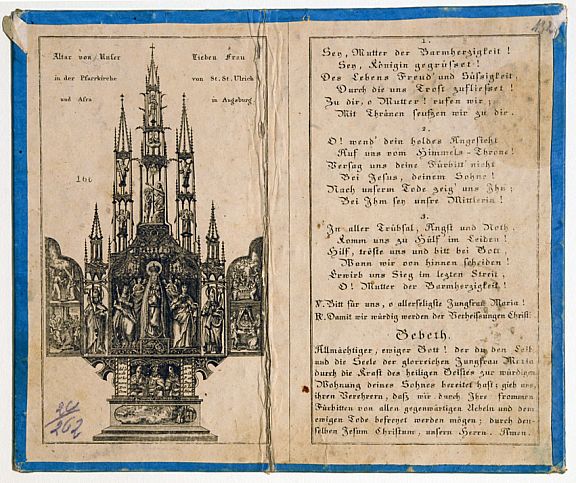 Altar von Unser Lieben Frau
in der Pfarrkirche von St. St. Ulrich
und Afra in Augsburg.
166
26
262
1.
Sey, Mutter der Barmherzigkeit!
Sey, Königin gegrüsset!
Des Lebens Freud' und Süssigkeit,
Durch die uns Trost zufliesset!
Zu dir, o Mutter! rufen wir;
Mit Thränen seufzen wir zu dir.
2.
O! wend' dein holdes Angesicht
Auf uns vom Himmels-Throne!
Versag uns deine Fürbitt' nicht
Bei Jesus, deinem Sohne!
Nach unserm Tode zeig' uns Ihn;
Bei Ihm sey unsre Mittlerin!
3.
In aller Trübsal, Angst und Noth,
Komm uns zu Hülf im Leiden!
Hilf, tröste uns und bitt bei Gott,
Wann wir von hinnen scheiden!
Erwirb uns Sieg im lezten Streit,
O! Mutter der Barmherzigkeit!
V. Bitt für uns, o allerseligste Jungfrau Maria!
R. Damit wir würdig werden der Verheisungen Christi.
Gebeth.
Allmächtiger, ewiger Gott! der du den Leib
und die Seele der glorreichen Jungfrau Maria
durch die Kraft des heiligen Geistes zur würdigen
Wohnung deines Sohnes bereitet hast; gieb uns,
ihren Verehrern, daß wir durch Ihre frommen
Fürbitten von allen gegenwärtigen Uebeln und dem
ewigen Tode befreyet werden mögen; durch den-
selben Jesum Christum, unsern Herrn. Amen.